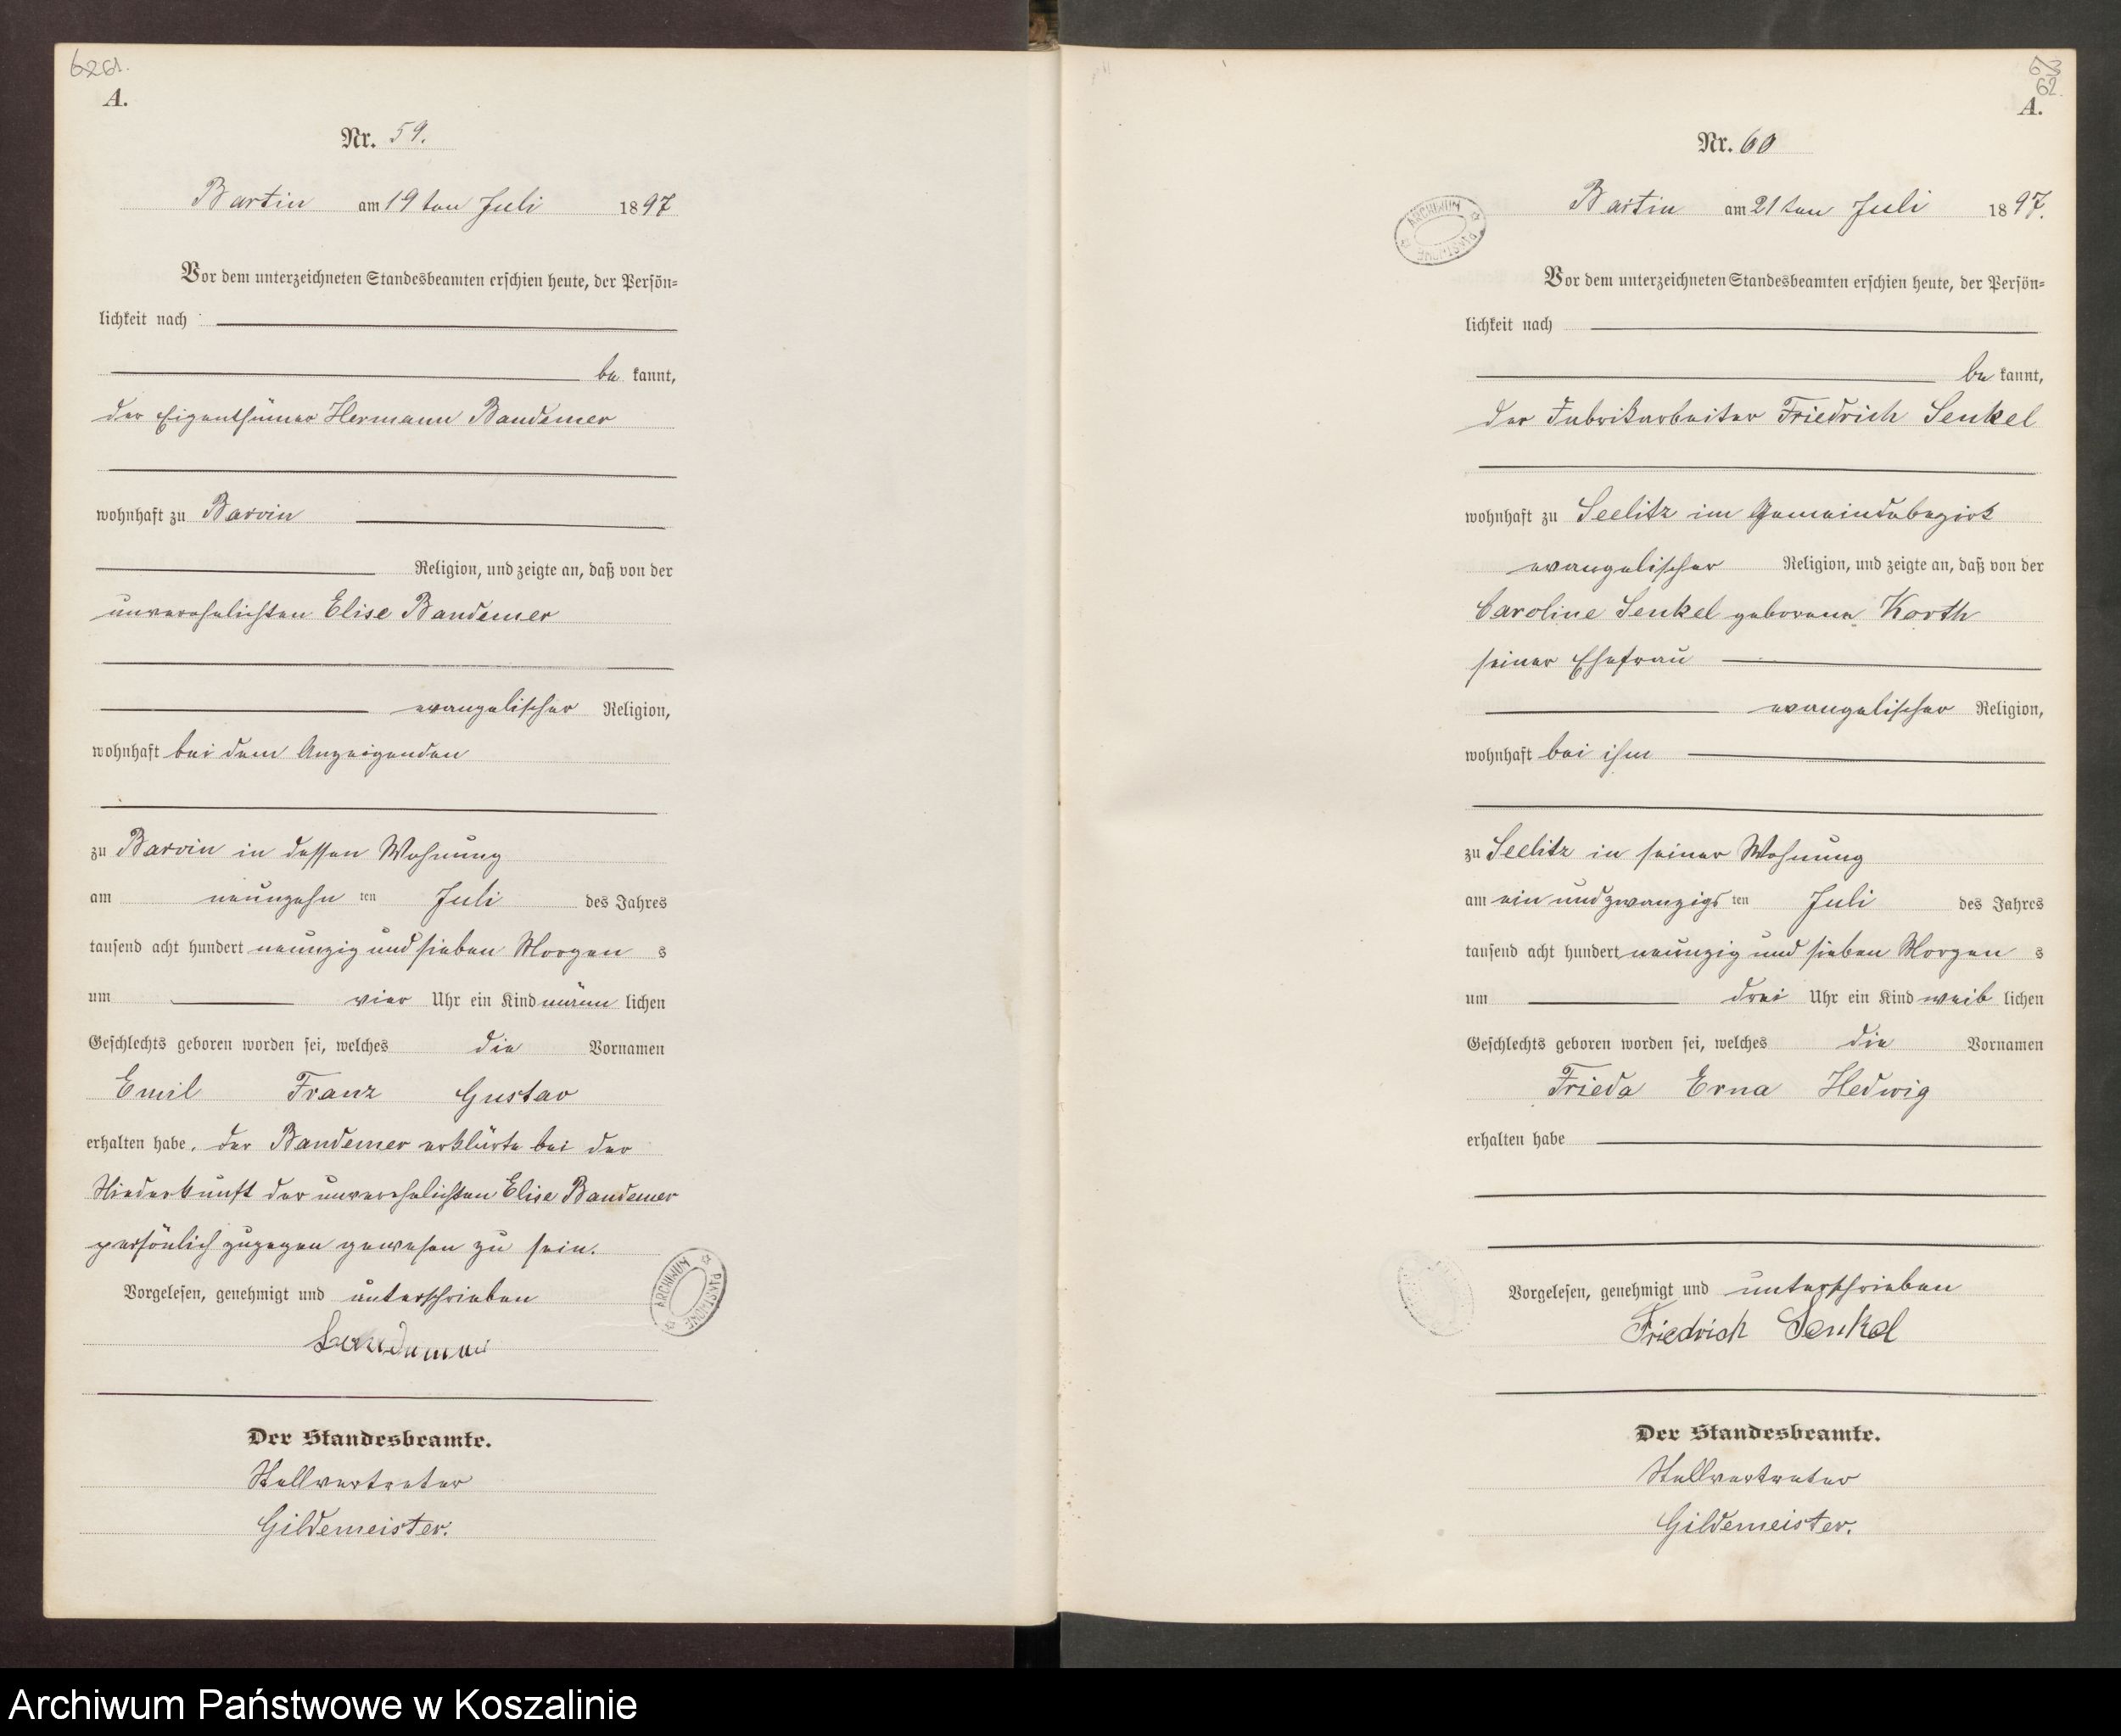 6261.
A.
Nr. 59.
Bartin am 19ten Juli 1897
Vor dem unterzeichneten Standesbeamten erschien heute, der Persön=
lichkeit nach
be kannt,
der Eigenthümer Hermann Bandemer
wohnhaft zu Barvin
Religion, und zeigte an, daß von der
unverehelichten Elise Bandemer
evangelischer Religion,
wohnhaft bei dem Anzeigenden
zu Barvin in dessen Wohnung
am neunzehn ten Juli des Jahres
tausend acht hundert neunzig und sieben Morgen s
um vier Uhr ein Kind männ lichen
Geschlechts geboren worden sei, welches die Vornamen
Emil Franz Gustav
erhalten habe. der Bandemer erklärte bei der
Niederkunft der unverehelichten Elise Bandemer
persönlich zugegen gewesen zu sein.
Vorgelesen, genehmigt und unterschrieben
Bandemer
ARCHIWUM PAŃSTWOWE
Der Standesbeamte.
Stellvertreter
Gildemeister.
63
62.
A.
Nr. 60
Bartin am 21ten Juli 1897.
ARCHIWUM PAŃSTWOWE
Vor dem unterzeichneten Standesbeamten erschien heute, der Persön=
lichkeit nach
be kannt,
der Fabrikarbeiter Friedrich Senkel
wohnhaft zu Seelitz im Gemeindebezirk
evangelischer Religion, und zeigte an, daß von der
Caroline Senkel geborene Korth
seiner Ehefrau
evangelischer Religion,
wohnhaft bei ihm
zu Seelitz in seiner Wohnung
am ein und zwanzigs ten Juli des Jahres
tausend acht hundert neunzig und sieben Morgen s
um drei Uhr ein Kind weib lichen
Geschlechts geboren worden sei, welches die Vornamen
Frieda Erna Hedwig
erhalten habe
Vorgelesen, genehmigt und unterschrieben
Friedrich Senkel
Der Standesbeamte.
Stellvertreter
Gildemeister.
Archiwum Państwowe w Koszalinie